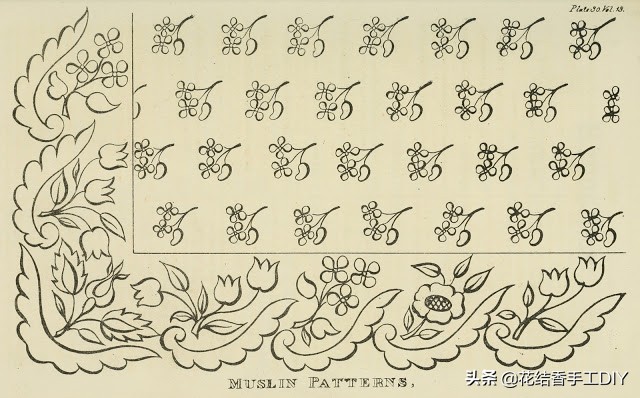 Plate 30. Vol. 13.
MUSLIN PATTERNS,
头条 @花结香手工DIY